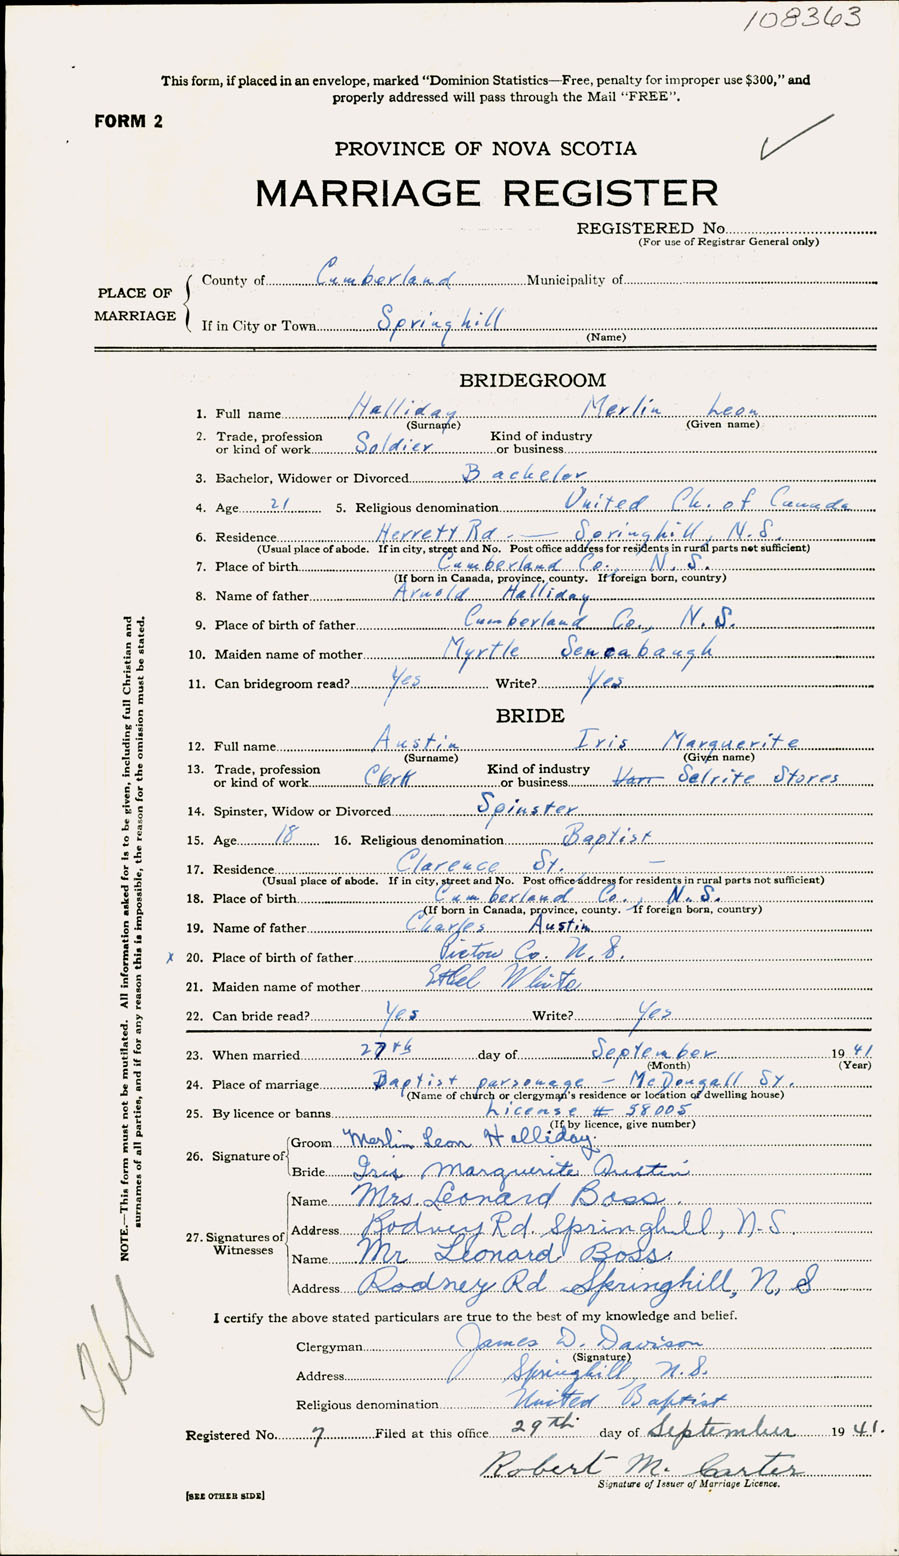 108363
This form, if placed in an envelope, marked "Dominion Statistics—Free, penalty for improper use $300," and
properly addressed will pass through the Mail "FREE".
FORM 2
PROVINCE OF NOVA SCOTIA
MARRIAGE REGISTER
REGISTERED No
(For use of Registrar General only)
PLACE OF MARRIAGE
County of Cumberland Municipality of
If in City or Town Springhill
(Name)
BRIDEGROOM
1. Full name Halliday Merlin Leon
(Surname) (Given name)
2. Trade, profession or kind of work Soldier Kind of industry or business
3. Bachelor, Widower or Divorced Bachelor
4. Age 21 5. Religious denomination United Ch. of Canada
6. Residence Herrett Rd. — Springhill, N.S.
(Usual place of abode. If in city, street and No. Post office address for residents in rural parts not sufficient)
7. Place of birth Cumberland Co., N.S.
(If born in Canada, province, county. If foreign born, country)
8. Name of father Arnold Halliday
9. Place of birth of father Cumberland Co., N.S.
10. Maiden name of mother Myrtle Sencabaugh
11. Can bridegroom read? Yes Write? Yes
BRIDE
12. Full name Austin Iris Marguerite
(Surname) (Given name)
13. Trade, profession or kind of work Clerk Kind of industry or business Selrite Stores
14. Spinster, Widow or Divorced Spinster
15. Age 18 16. Religious denomination Baptist
17. Residence Clarence St. —
(Usual place of abode. If in city, street and No. Post office address for residents in rural parts not sufficient)
18. Place of birth Cumberland Co., N.S.
(If born in Canada, province, county. If foreign born, country)
19. Name of father Charles Austin
x 20. Place of birth of father Pictou Co. N.S.
21. Maiden name of mother Ethel White
22. Can bride read? Yes Write? Yes
23. When married 27th day of September 1941
(Month) (Year)
24. Place of marriage Baptist parsonage – McDougall St.
(Name of church or clergyman's residence or location of dwelling house)
25. By licence or banns License # 58005
(If by licence, give number)
26. Signature of
Groom Merlin Leon Halliday.
Bride Iris Marguerite Austin
27. Signatures of Witnesses
Name Mrs. Leonard Boss.
Address Rodney Rd Springhill, N.S.
Name Mr Leonard Boss.
Address Rodney Rd Springhill, N, S
I certify the above stated particulars are true to the best of my knowledge and belief.
Clergyman James D. Davison
(Signature)
Address Springhill, N.S.
Religious denomination United Baptist
Registered No. 7 Filed at this office 29th day of September 1941.
Robert M. Carter
Signature of Issuer of Marriage Licence.
[SEE OTHER SIDE]
NOTE.—This form must not be mutilated. All information asked for is to be given, including full Christian and
surnames of all parties, and if for any reason this is impossible, the reason for the omission must be stated.